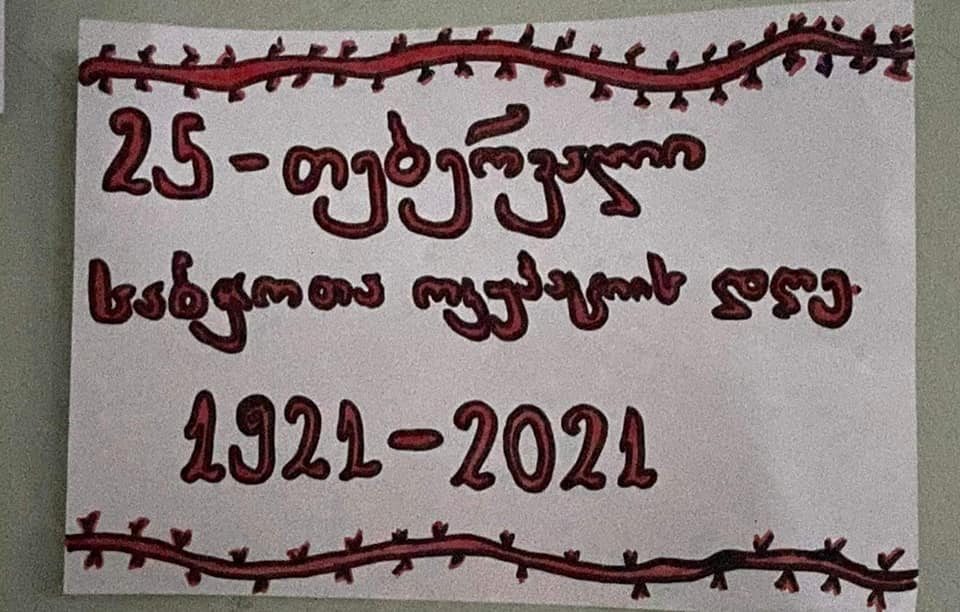 25-თებერვალი
საბჭოთა ოკუპაციის დღე.
1921-2021